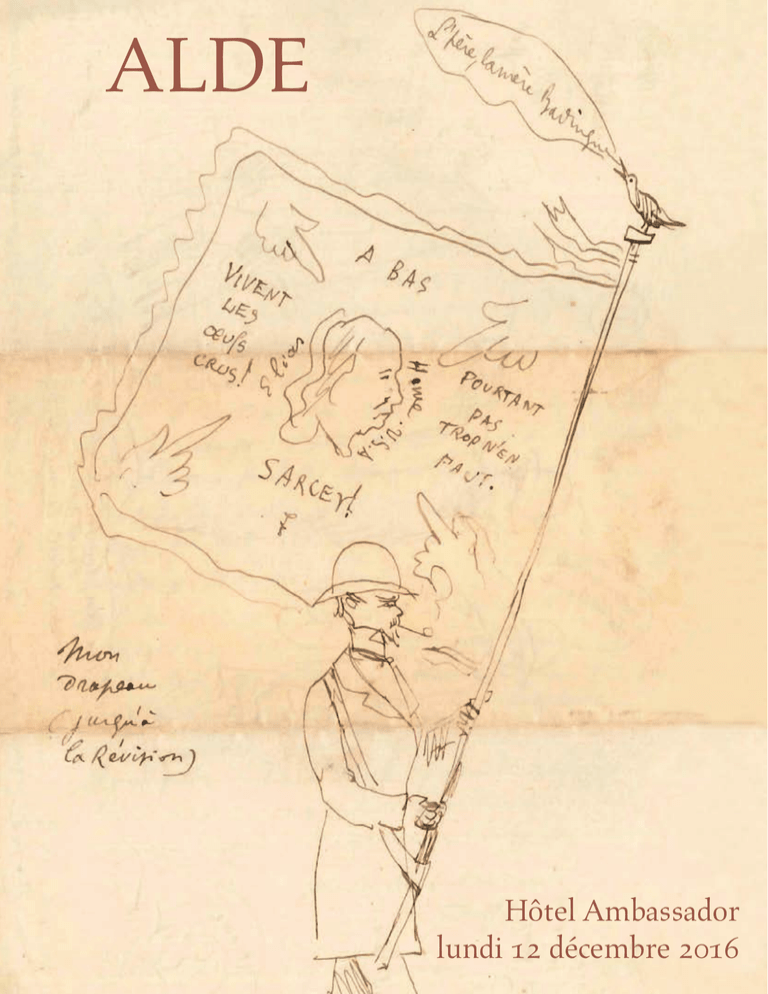 ALDE
L'père, la mère Badingue
A BAS
VIVENT
LES
ŒUFS
CRUS!
Elias
Home. U.S.A
POURTANT
PAS
TROP N'EN
FAUT.
SARCEY!
Mon
Drapeau
(jusqu'à
la Révision)
Hôtel Ambassador
lundi 12 décembre 2016